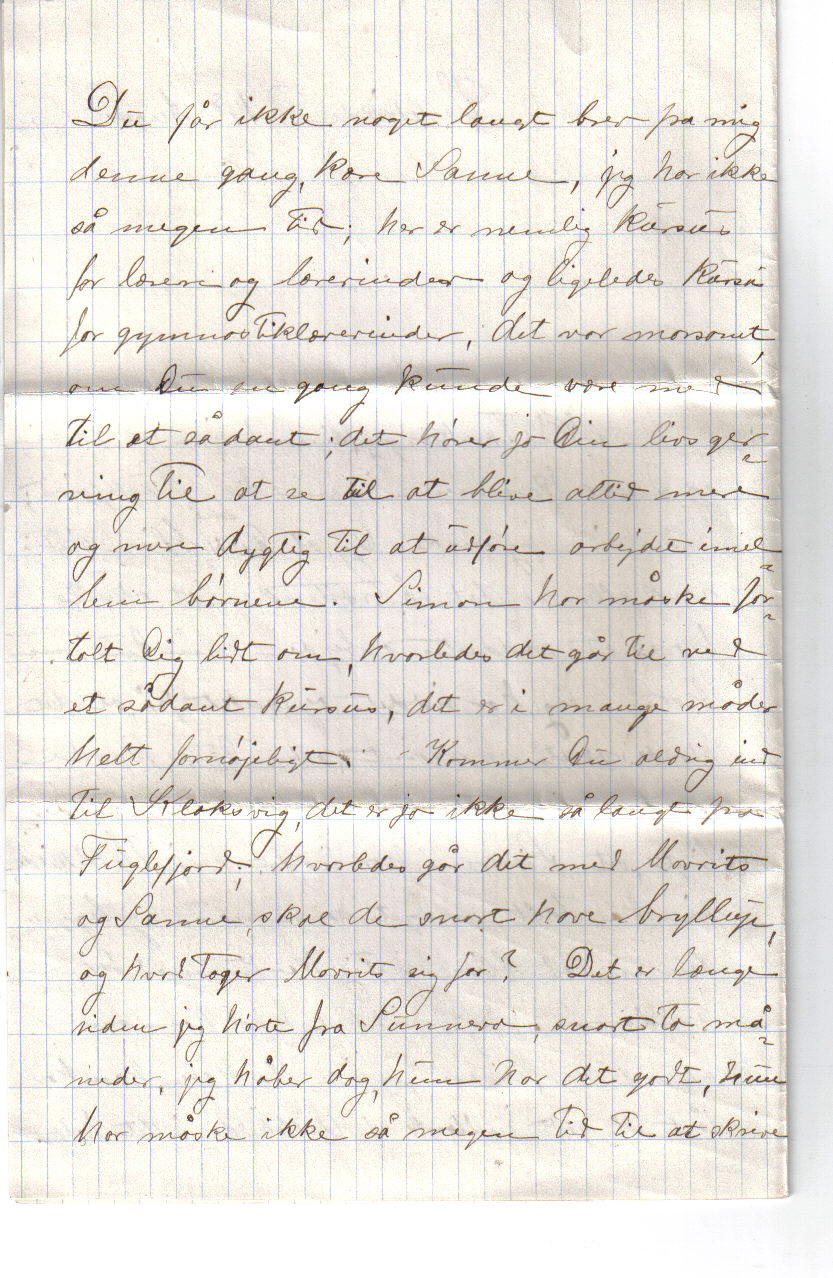 Du får ikke noget langt brev fra mig
denne gang, kære Sanne, jeg har ikke
så megen tid; her er nemlig kursus
for lærere og lærerinder og ligeledes kursus
for gymnastiklærerinder, det var morsomt,
om Du en gang kunde være med
til et sådant; det hører jo Din livs ger-
ning til at se til at blive altid mere
og mere dygtig til at udføre arbejdet imel-
lem børnene. Simon har måske for-
talt Dig lidt om, hvorledes det går til ved
et sådant kursus, det er i mange måder
helt fornøjeligt. Kommer Du aldrig ind
til Klaksvig, det er jo ikke så langt fra
Fuglefjord; hvorledes går det med Mourits
og Sanne, skal de snart have bryllup,
og hvad tager Mourits sig for? Det er længe
siden jeg hørte fra Sunneva, snart to må-
neder, jeg håber dog, hun har det godt, hun
har måske ikke så megen tid til at skrive